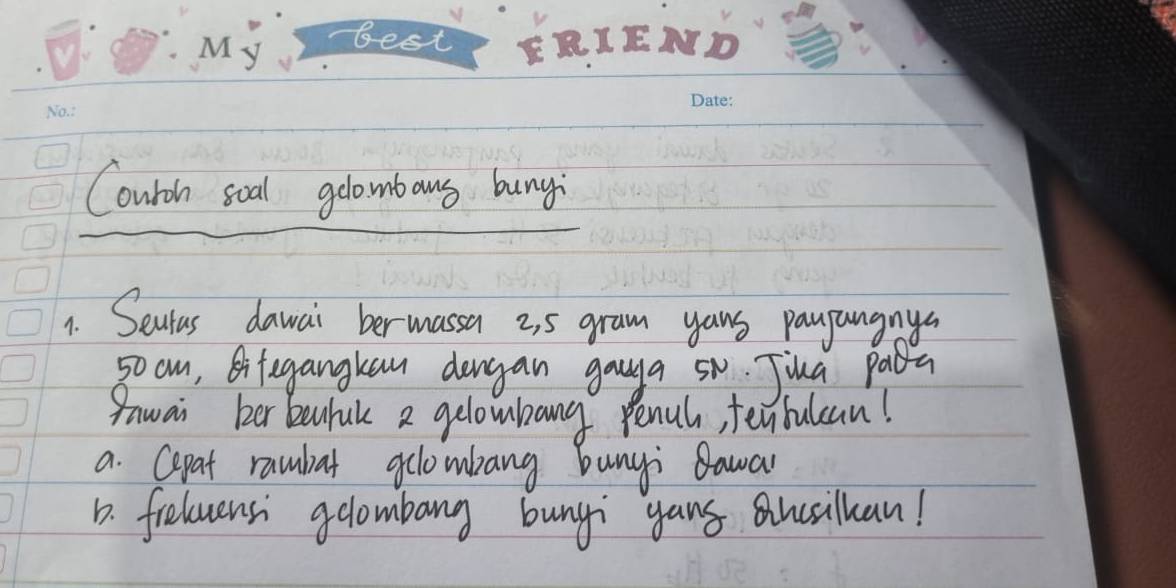 My best FRIEND
No.: Date:
Contoh soal gelombang bunyi
1. Seutas dawai bermassa 2,5 gram yang panjangnya
50 cm, ditegangkan dengan gaya 5N. Jika pada
dawai berbentuk 2 gelombang penuh, tentukan!
a. Cepat rambat gelombang bunyi dawai
b. frekuensi gelombang bunyi yang dihasilkan!